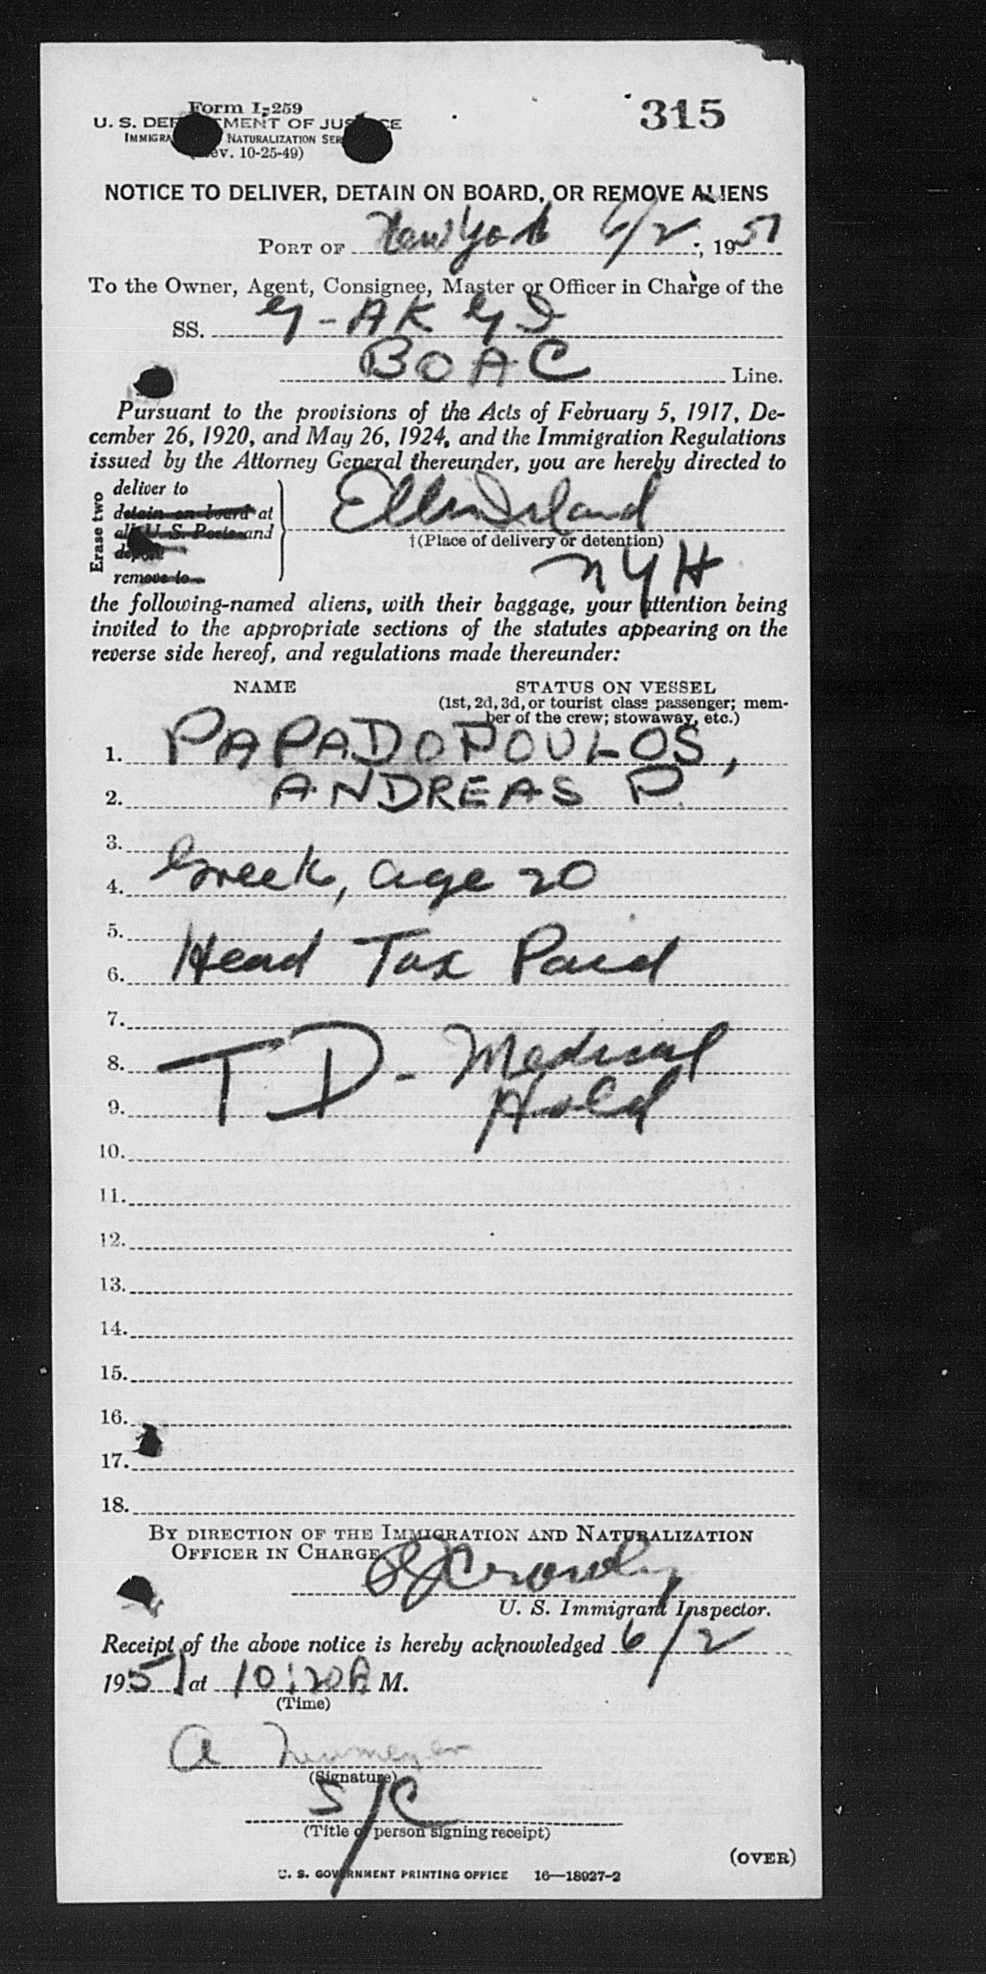 Form I-259
315
U. S. DEPARTMENT OF JUSTICE
IMMIGRATION NATURALIZATION SER
(Rev. 10-25-49)
NOTICE TO DELIVER, DETAIN ON BOARD, OR REMOVE ALIENS
PORT OF New York 6/2, 1951
To the Owner, Agent, Consignee, Master or Officer in Charge of the
SS. G-AKGI
BOAC Line.
Pursuant to the provisions of the Acts of February 5, 1917, De-
cember 26, 1920, and May 26, 1924, and the Immigration Regulations
issued by the Attorney General thereunder, you are hereby directed to
Erase two
deliver to
detain on board at
all U.S. Ports and
deport
remove to
Ellis Island
†(Place of delivery or detention)
NYH
the following-named aliens, with their baggage, your attention being
invited to the appropriate sections of the statutes appearing on the
reverse side hereof, and regulations made thereunder:
NAME STATUS ON VESSEL
(1st, 2d, 3d, or tourist class passenger; mem-
ber of the crew; stowaway, etc.)
1. PAPADOPOULOS,
2. ANDREAS P.
3.
4. Greek, age 20
5.
6. Head Tax Paid
7.
8. TD - Medical
9. Hold
10.
11.
12.
13.
14.
15.
16.
17.
18.
BY DIRECTION OF THE IMMIGRATION AND NATURALIZATION
OFFICER IN CHARGE
Crowley
U. S. Immigrant Inspector.
Receipt of the above notice is hereby acknowledged 6/2
1951 at 10:20 A M.
(Time)
A Neumeyer
(Signature)
S/C
(Title of person signing receipt)
(OVER)
U. S. GOVERNMENT PRINTING OFFICE 16—18927-2